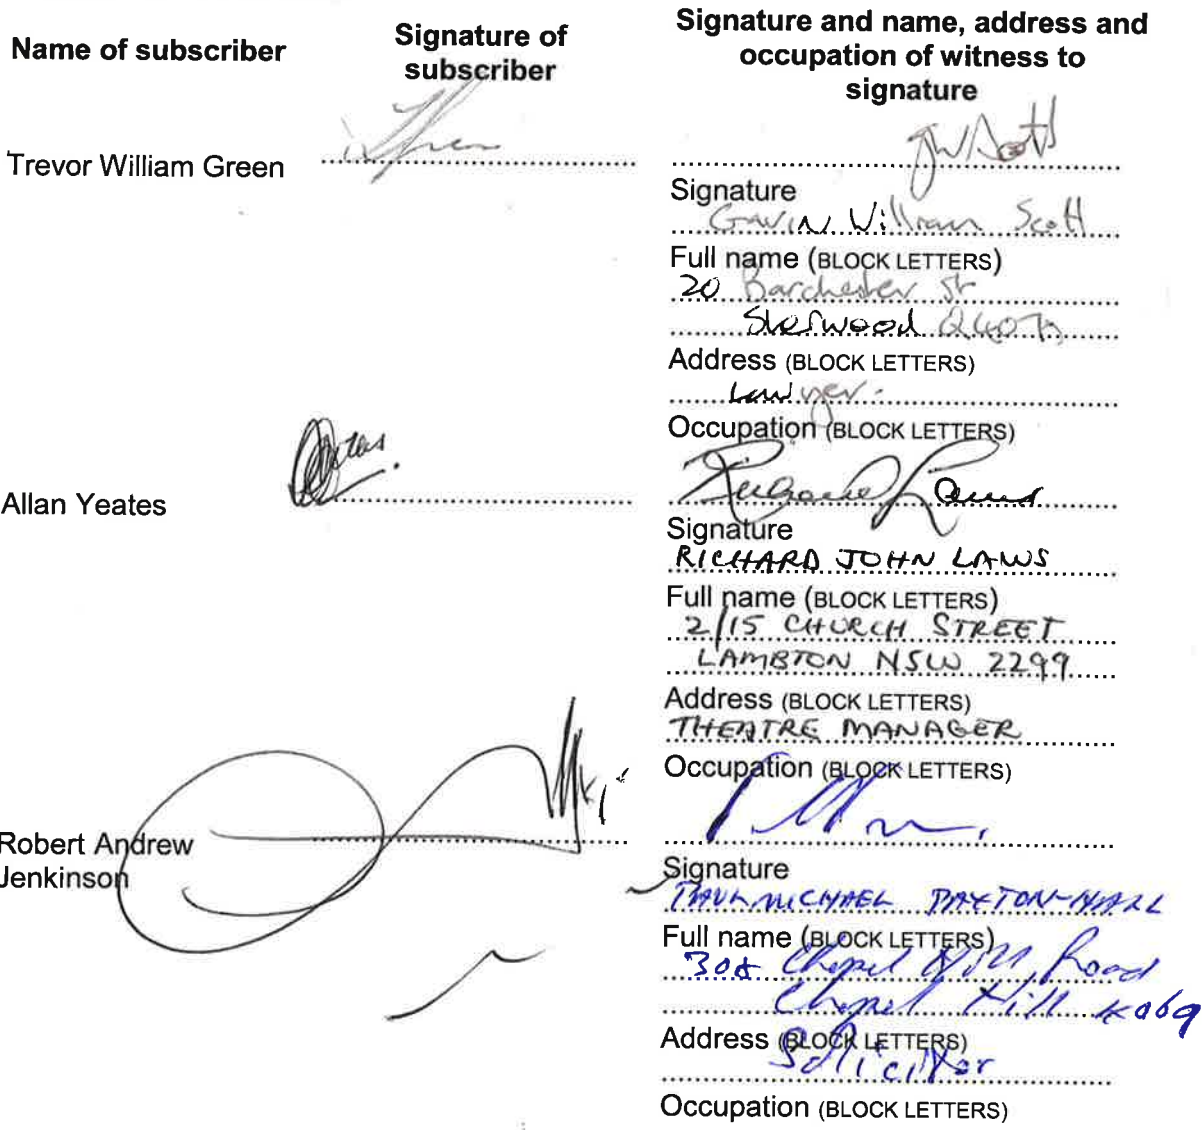 Name of subscriber
Signature of
subscriber
Signature and name, address and
occupation of witness to
signature
Trevor William Green
GW Scott
Signature
GAVIN William Scott
Full name (BLOCK LETTERS)
20 Barchester St
Sherwood Q4075
Address (BLOCK LETTERS)
Lawyer.
Occupation (BLOCK LETTERS)
Allan Yeates
Richard Laws
Signature
RICHARD JOHN LAWS
Full name (BLOCK LETTERS)
2/15 CHURCH STREET
LAMBTON NSW 2299
Address (BLOCK LETTERS)
THEATRE MANAGER
Occupation (BLOCK LETTERS)
Robert Andrew
Jenkinson
Signature
PAUL MICHAEL PAXTON-HALL
Full name (BLOCK LETTERS)
Chapel Hill Road
Chapel Hill 4069
Address (BLOCK LETTERS)
Solicitor
Occupation (BLOCK LETTERS)